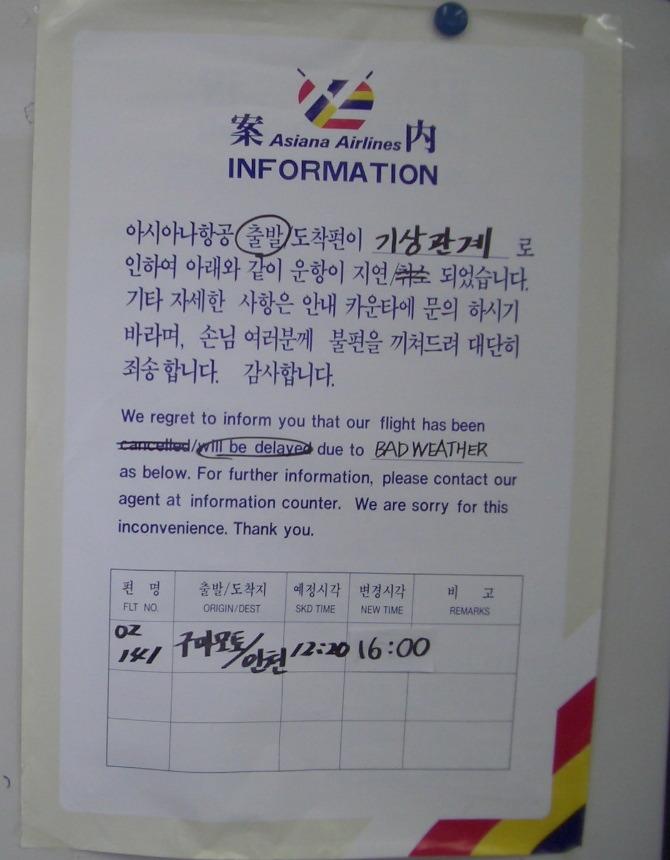 案 Asiana Airlines 内
INFORMATION
아시아나항공 출발/도착편이 기상관계 로
인하여 아래와 같이 운항이 지연/취소 되었습니다.
기타 자세한 사항은 안내 카운타에 문의 하시기
바라며, 손님 여러분께 불편을 끼쳐드려 대단히
죄송합니다. 감사합니다.
We regret to inform you that our flight has been
cancelled/will be delayed due to BAD WEATHER
as below. For further information, please contact our
agent at information counter. We are sorry for this
inconvenience. Thank you.
편 명 출발/도착지 예정시각 변경시각 비 고
FLT NO. ORIGIN/DEST SKD TIME NEW TIME REMARKS
OZ 141 구마모토/인천 12:20 16:00